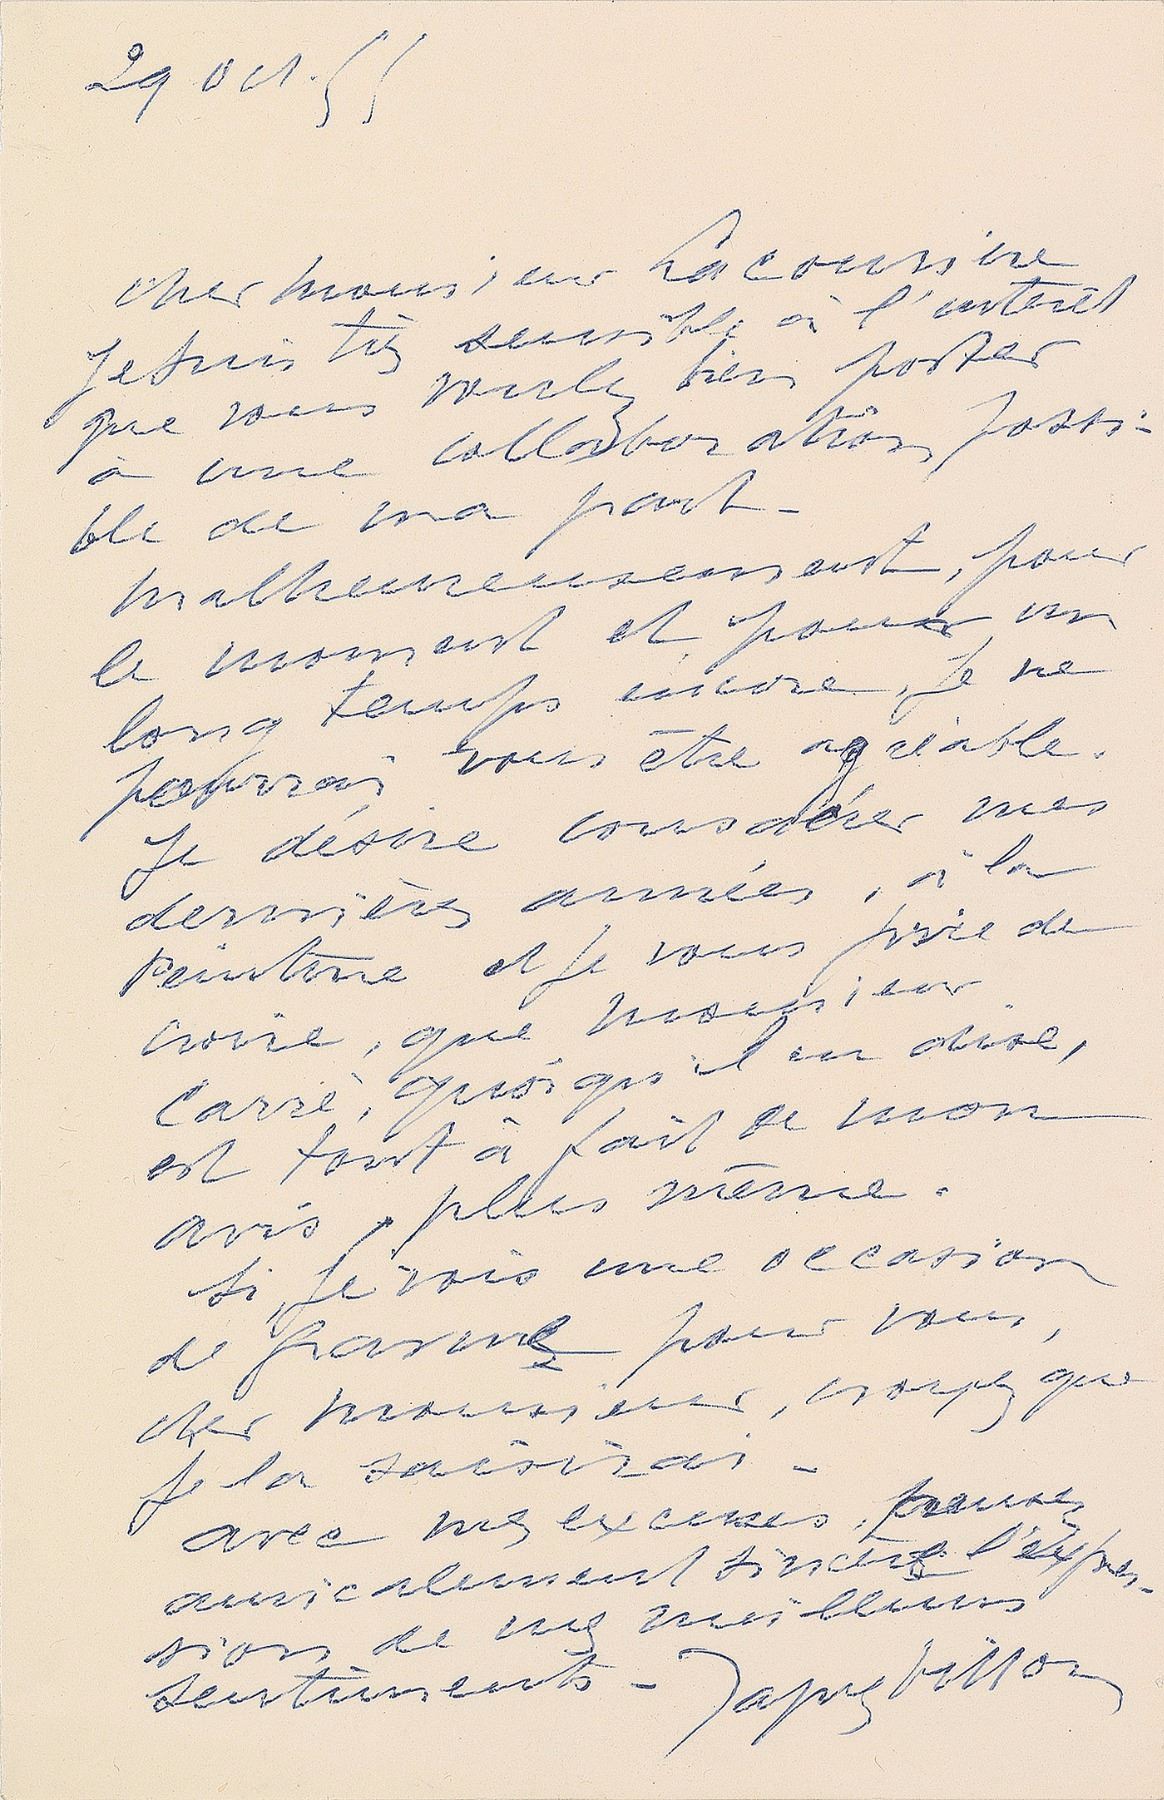 29 Oct. 55
cher monsieur Lacourière
Je suis très sensible à l'intérêt
que vous voulez bien porter
à une collaboration possi-
ble de ma part -
malheureusement, pour
le moment et pour un
long temps encore, je ne
pourrai vous être agréable.
Je désire consacrer mes
dernières années, à la
Peinture et je vous prie de
croire, que monsieur
Carré, quoiqu'il en dise,
est tout à fait de mon
avis, plus même.
Si je vois une occasion
de gravure pour vous,
cher monsieur, croyez que
je la saisirai -
avec mes excuses,
amicalement sincère l'expres-
sion de mes meilleurs
sentiments - Jacques Villon